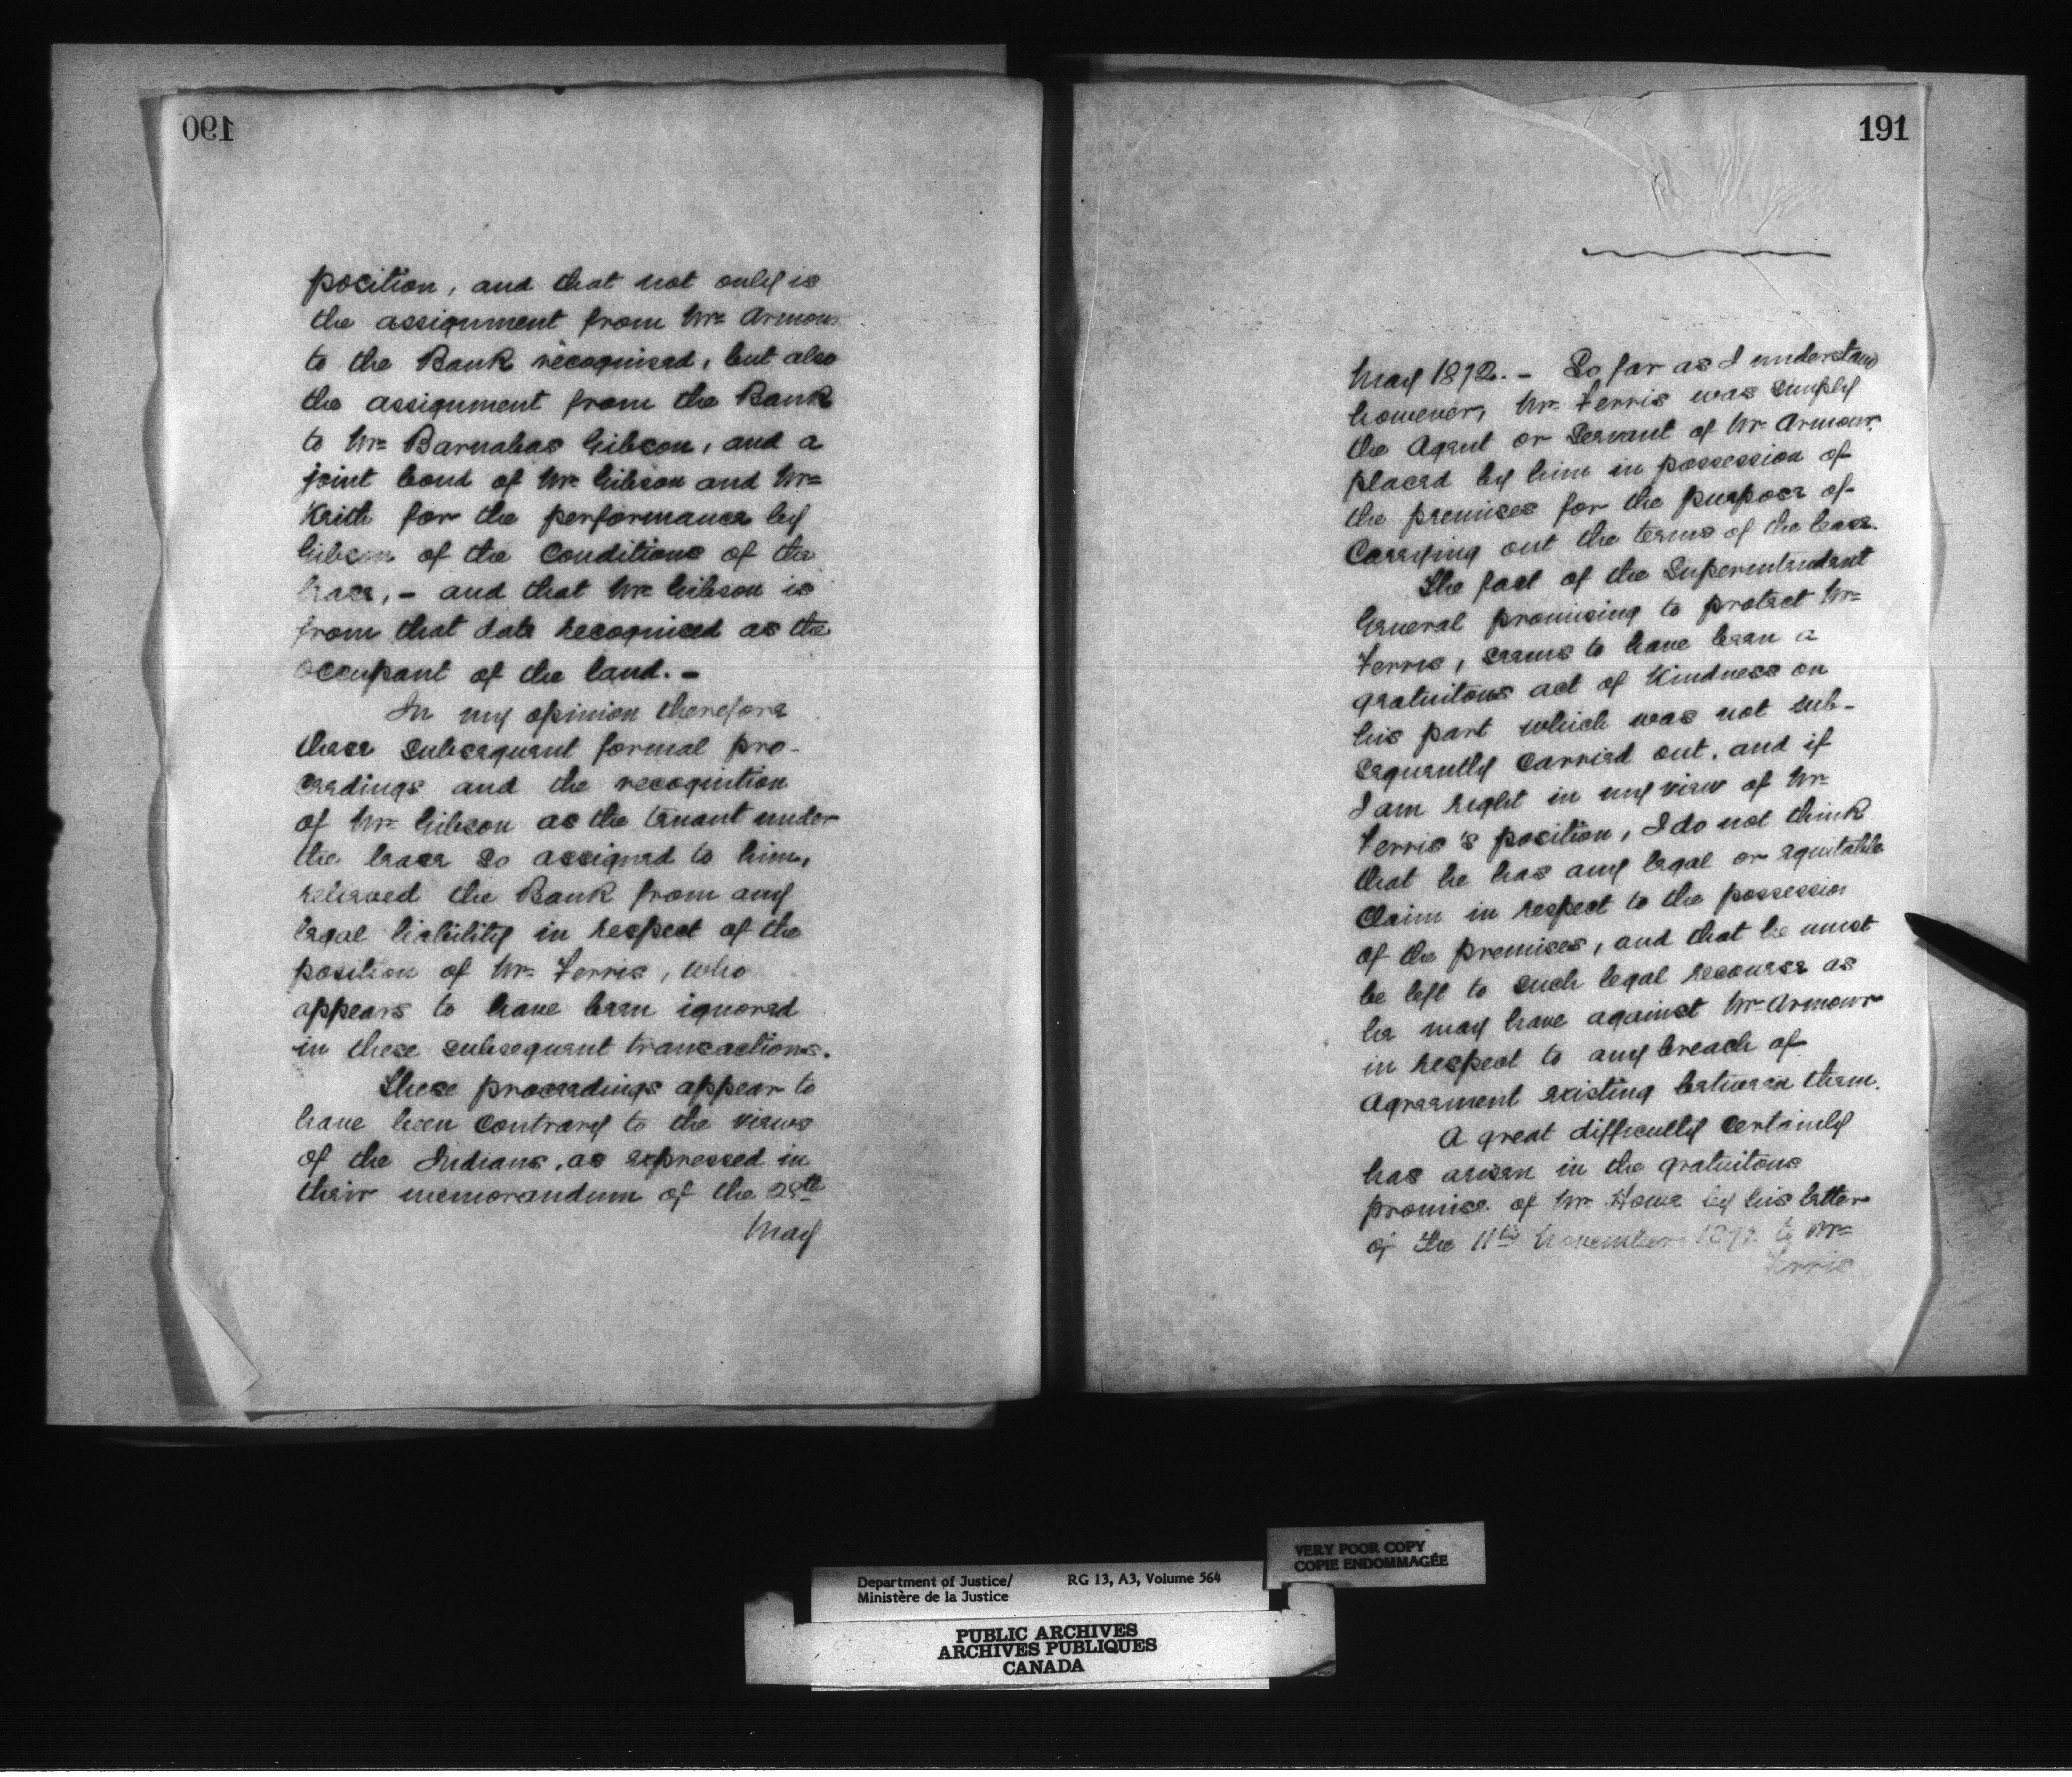 190
position, and that not only is
the assignment from Mr. Armour
to the Bank recognised, but also
the assignment from the Bank
to Mr. Barnabas Gibson, and a
joint bond of Mr. Gibson and Mr.
Keith for the performance by
Gibson of the Conditions of the
lease, - and that Mr. Gibson is
from that date recognised as the
occupant of the land. -
In my opinion therefore
these subsequent formal pro-
ceedings and the recognition
of Mr. Gibson as the tenant under
the lease so assigned to him,
relieved the Bank from any
legal liability in respect of the
position of Mr. Ferris, who
appears to have been ignored
in these subsequent transactions.
These proceedings appear to
have been contrary to the views
of the Indians, as expressed in
their memorandum of the 28th
May
191
May 1872. - So far as I understand
however, Mr. Ferris was simply
the Agent or Servant of Mr. Armour,
placed by him in possession of
the premises for the purpose of
Carrying out the terms of the lease.
The fact of the Superintendent
General promising to protect Mr.
Ferris, seems to have been a
gratuitous act of Kindness on
his part which was not sub-
sequently carried out, and if
I am right in my view of Mr.
Ferris's position, I do not think
that he has any legal or equitable
Claim in respect to the possession
of the premises, and that he must
be left to such legal recourse as
he may have against Mr. Armour
in respect to any breach of
Agreement existing between them.
A great difficulty certainly
has arisen in the gratuitous
promise of Mr. Howe by his letter
of the 11th November 1872 to Mr.
Ferris
VERY POOR COPY
COPIE ENDOMMAGÉE
Department of Justice/ RG 13, A3, Volume 564
Ministère de la Justice
PUBLIC ARCHIVES
ARCHIVES PUBLIQUES
CANADA